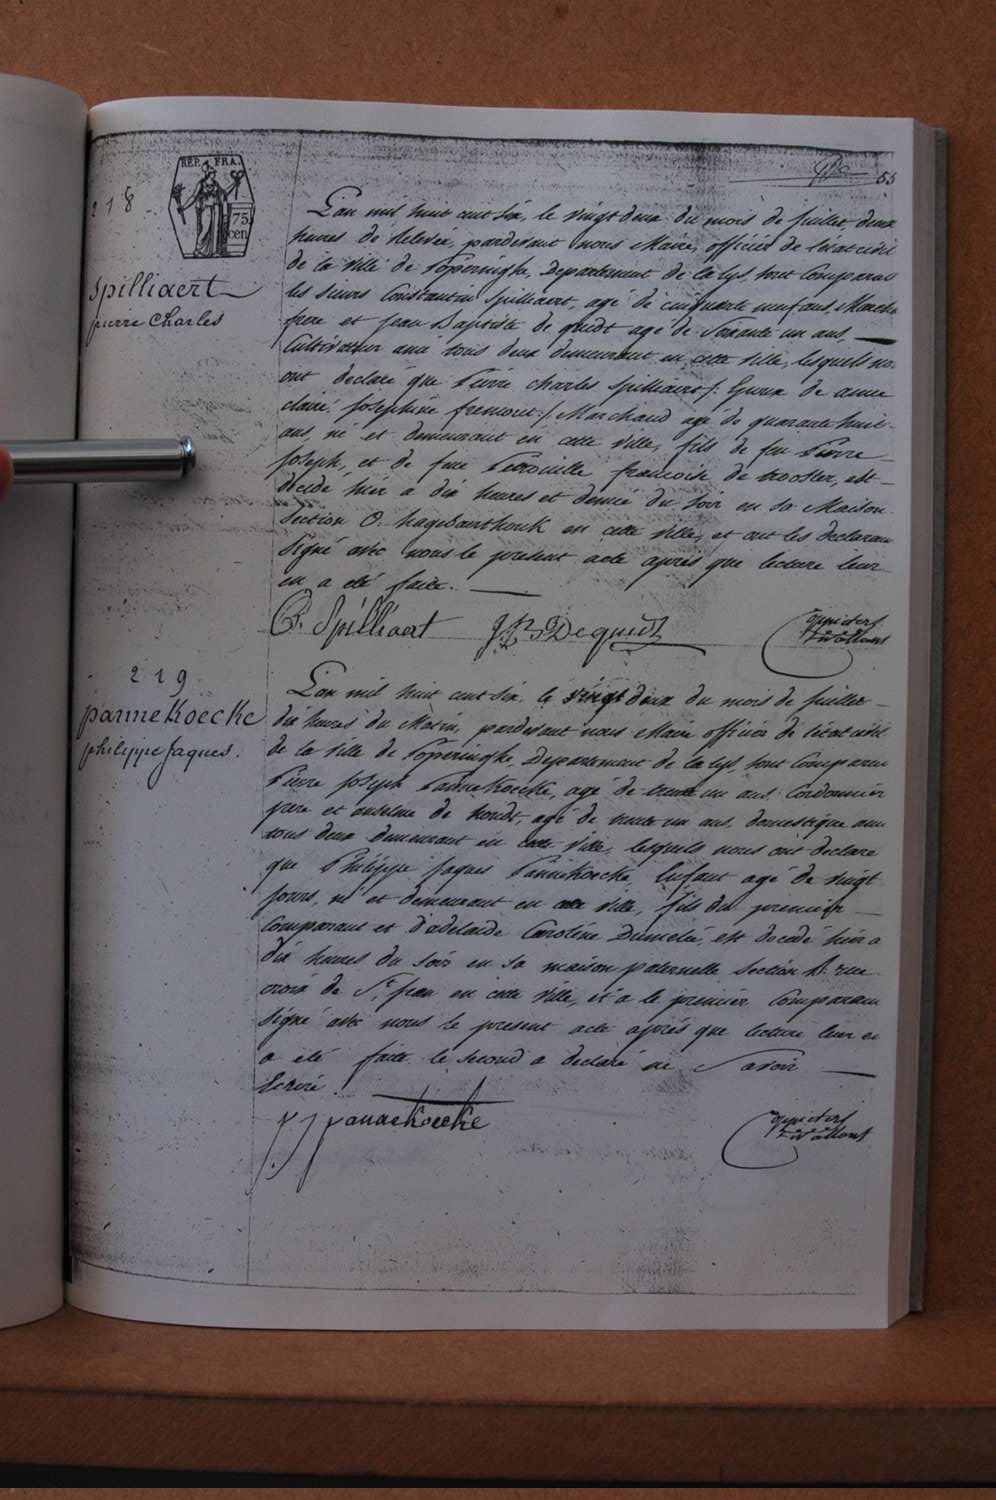 55
REP. FRA.
75 cen
218
Spilliaert
pierre Charles
L'an mil huit cent six, le vingt deux du mois de juillet, deux
heures de relevée, pardevant nous Maire, officier de l'etat civil
de la ville de Poperinghe, Departement de la Lys, sont Comparus
les sieurs Constantin Spilliaert, agé de cinquante neuf ans, Marchd
frere et Jean Baptiste de quidt agé de Soixante un ans,
Cultivateur ami tous deux demeurant en cette ville, lesquels no
ont declaré que Pierre Charles Spilliaert /: Epoux de anne
claire Josephine fremout :/ Marchand agé de quarante huit
ans, né et demeurant en cette ville, fils de feu Pierre
Joseph, et de feue Petronille francoise de trooster, est
decedé hier a dix heures et demie du soir en sa Maison
Section O. en cette ville, et ont les declarans
signé avec nous le present acte aprés que lecture leur
en a eté faite.
C. Spilliaert J Bte Dequidt
219
pannekoecke
philippe Jaques.
L'an mil huit cent six, le vingt deux du mois de juillet
dix heures du Matin, pardevant nous Maire officier de l'etat civil
de la ville de Poperinghe, Departement de la Lys, sont Comparus
Pierre Joseph Pannekoecke, agé de trente un ans, Cordonnier
pere et anselme de agé de trente un ans, domestique ami
tous deux demeurant en cette ville, lesquels nous ont declaré
que Philippe Jaques Pannekoecke, Enfant agé de vingt
jours, né et demeurant en cette ville, fils du premier
Comparant et d'adelaide Caroline est decedé hier a
dix heures du soir en sa maison paternelle section A. rue
croix de St. Jean en cette ville, et a le premier Comparant
signé avec nous le present acte aprés que lecture leur en
a eté faite le second a declaré ne Savoir
Ecrire.
p J pannekoecke